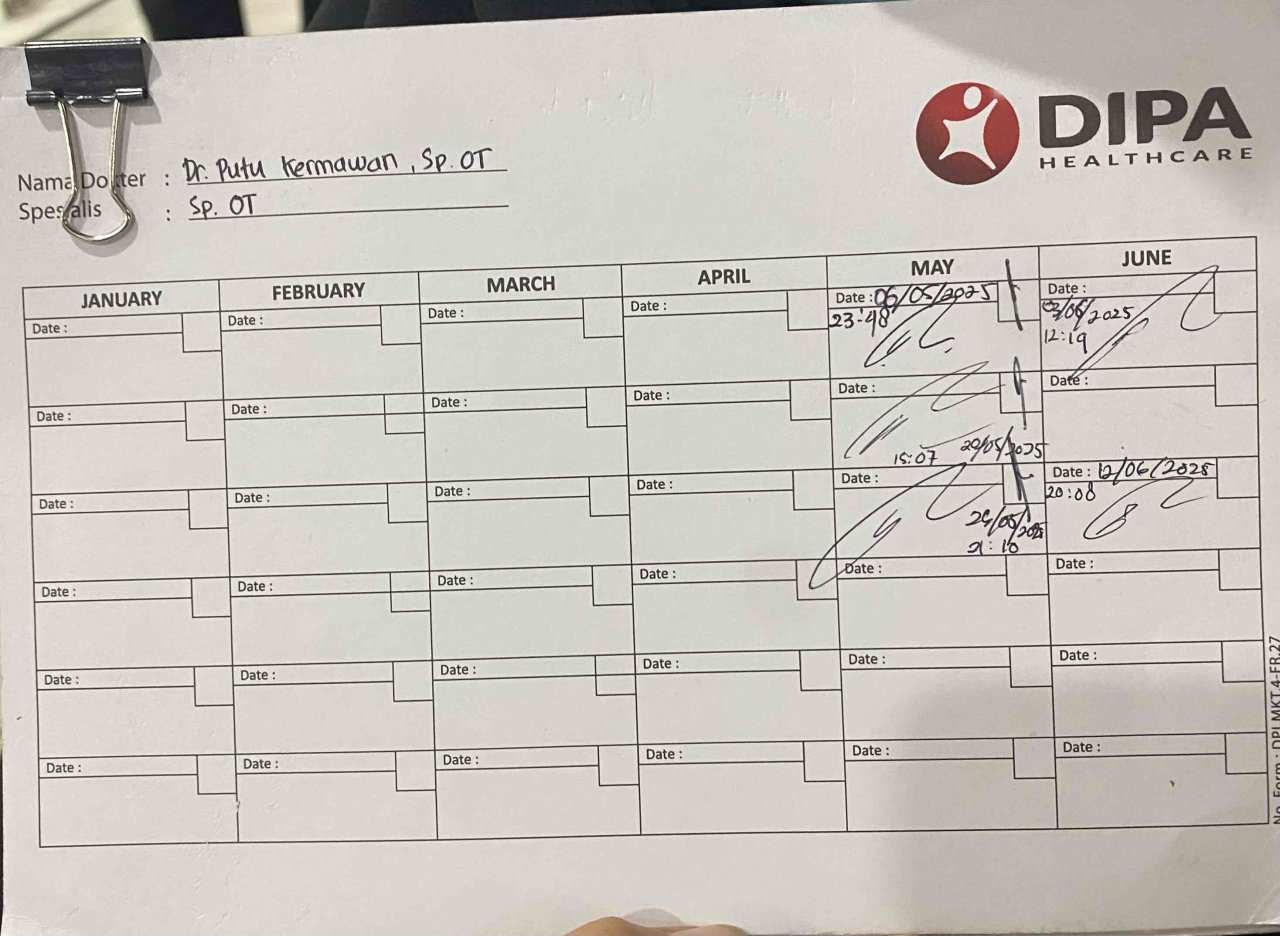 DIPA
HEALTHCARE
Nama Dokter : Dr. Putu Kermawan, Sp. OT
Spesialis : Sp. OT
JANUARY FEBRUARY MARCH APRIL MAY JUNE
Date : Date : Date : Date : Date : 06/05/2025 Date :
23:48 03/06/2025
12:19
Date : Date : Date : Date : Date : Date :
15:07
Date : Date : Date : Date : Date : Date : 12/06/2025
20:08
Date : Date : Date : Date : Date : Date :
Date : Date : Date : Date : Date : Date :
Date : Date : Date : Date : Date : Date :
No. Form : DPI.MKT.4-FR.27